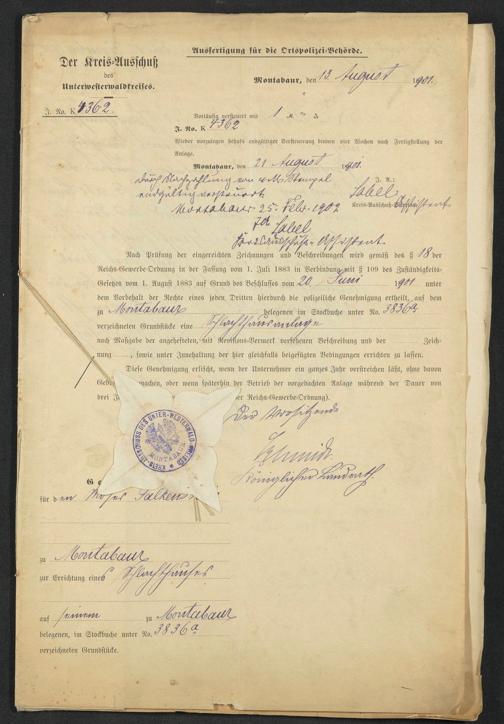 Ausfertigung für die Ortspolizei-Behörde.
Der Kreis-Ausschuß
des
Unterwesterwaldkreises.
J. No. K 4362.
Montabaur, den 13. August 1901.
Vorläufig versteuert mit 1 M
J. No. K 4362
Wieder vorzulegen behufs endgültiger Versteuerung binnen vier Wochen nach Fertigstellung der
Anlage.
Montabaur, den 21 August 1901.
J. A.:
durch Nachzahlung von M. Stempel
endgültig versteuert
Sabel
Kreis-Ausschuß-Assistent
Montabaur 25. Febr. 1902
Sabel
Kreisausschuß-Assistent.
Nach Prüfung der eingereichten Zeichnungen und Beschreibungen wird gemäß des § 18 der
Reichs-Gewerbe-Ordnung in der Fassung vom 1. Juli 1883 in Verbindung mit § 109 des Zuständigkeits-
Gesetzes vom 1. August 1883 auf Grund des Beschlusses vom 20 Juni 1901 unter
dem Vorbehalt der Rechte eines jeden Dritten hierdurch die polizeiliche Genehmigung ertheilt, auf dem
zu Montabaur belegenen im Stockbuche unter No. 3836a
verzeichneten Grundstücke eine Schlachthausanlage
nach Maßgabe der angehefteten, mit Revisions-Vermerk versehenen Beschreibung und der Zeich-
nung, sowie unter Innehaltung der hier gleichfalls beigefügten Bedingungen errichten zu lassen.
Diese Genehmigung erlischt, wenn der Unternehmer ein ganzes Jahr verstreichen läßt, ohne davon
Geb machen, oder wenn späterhin der Betrieb der vorgedachten Anlage während der Dauer von
drei J der Reichs-Gewerbe-Ordnung).
Der Vorsitzende
Schmidt
Königlicher Landrath.
KREIS-AUSSCHUSS DES UNTER-WESTERWALD
MONTABAUR
für den Moses Falken
zu Montabaur
zur Errichtung eines Schlachthauses
auf seinem zu Montabaur
belegenen, im Stockbuche unter No. 3836a
verzeichneten Grundstücke.